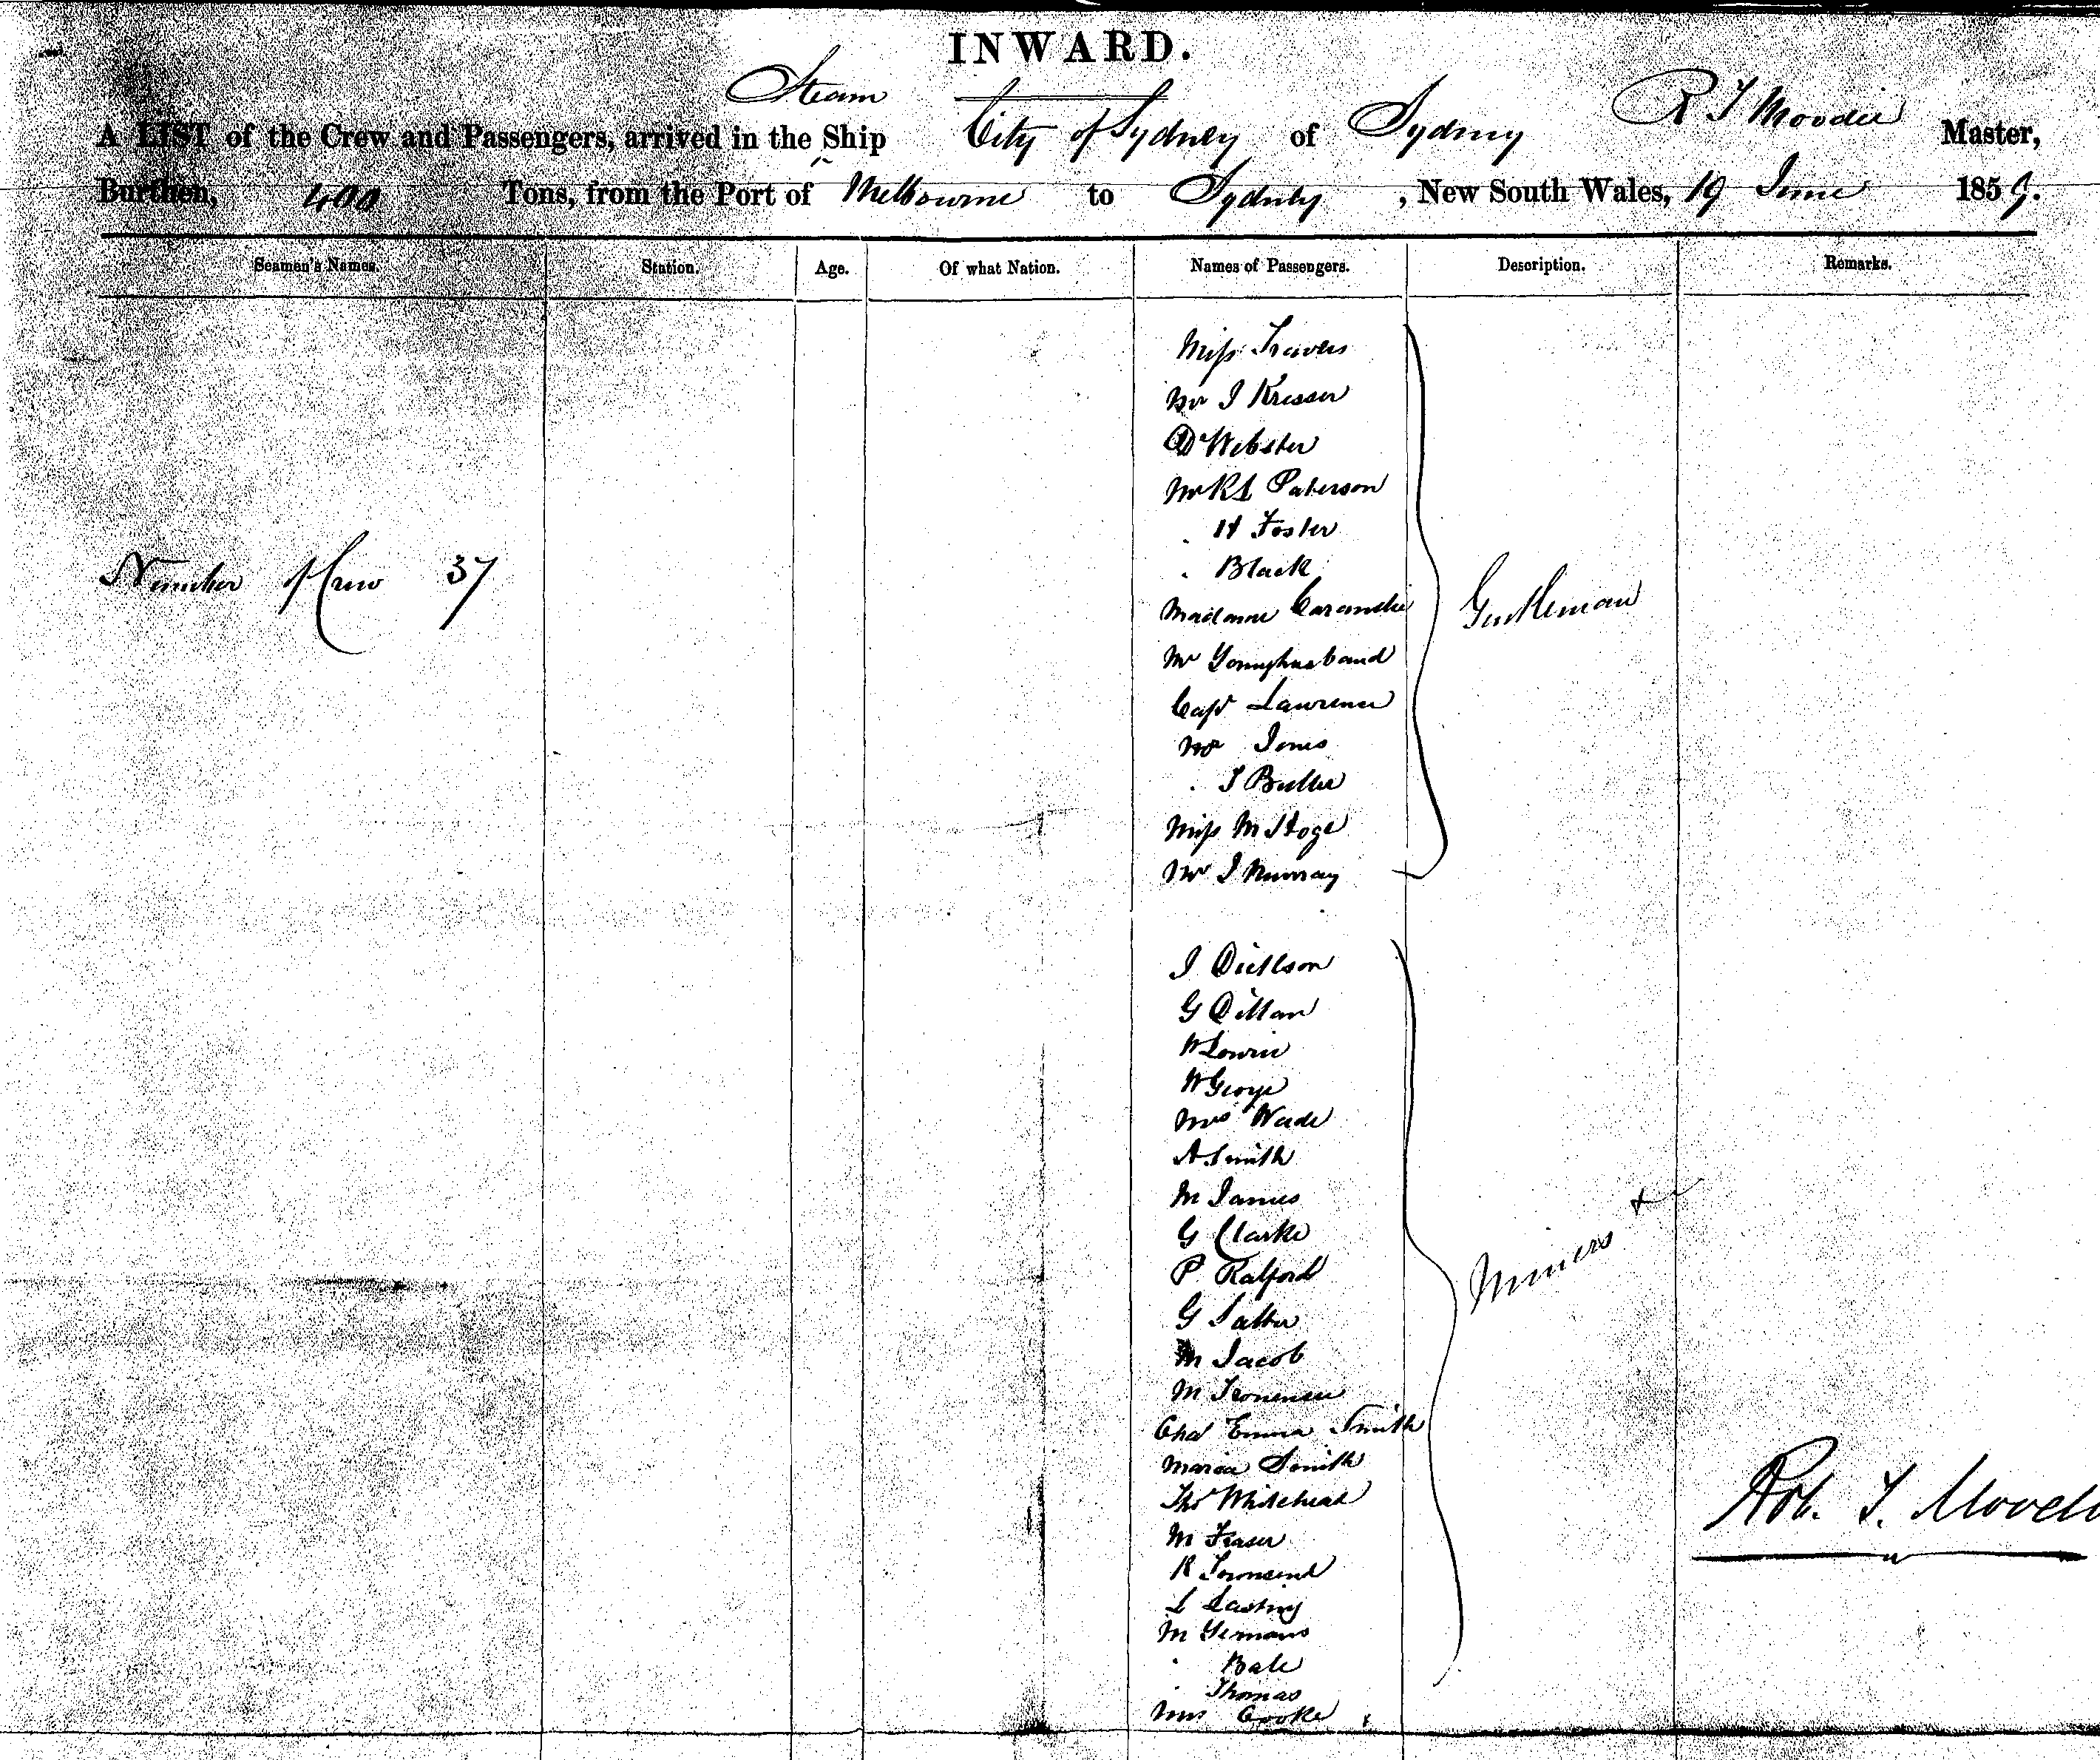 INWARD.
Steam
A LIST of the Crew and Passengers, arrived in the Ship City of Sydney of Sydney R T Moodie Master,
Burthen, 400 Tons, from the Port of Melbourne to Sydney, New South Wales, 19 June 1859.
Seamen's Names. Station. Age. Of what Nation. Names of Passengers. Description. Remarks.
Miss Travers
Mr J Kresser
Dr Webster
Mr Rt Paterson
. H Foster
. Black
Number of Crew 37
Madame
Gentleman
Mr Younghusband
Capt Lawrence
Mr Jones
. J Butler
Miss M Hoge
Mr J Murray
J
G Dillan
W Lowrie
W George
Mrs Wade
A Smith
M James
G Clarke
P Ralford
G Salter
Miners &
M Jacob
M
Chas Emma Smith
Maria Smith
Thos Whitehead
M Fraser
Rob. T. Moodie
R Townsend
L Lasting
M Yemans
. Bale
. Thomas
Mrs Cooke